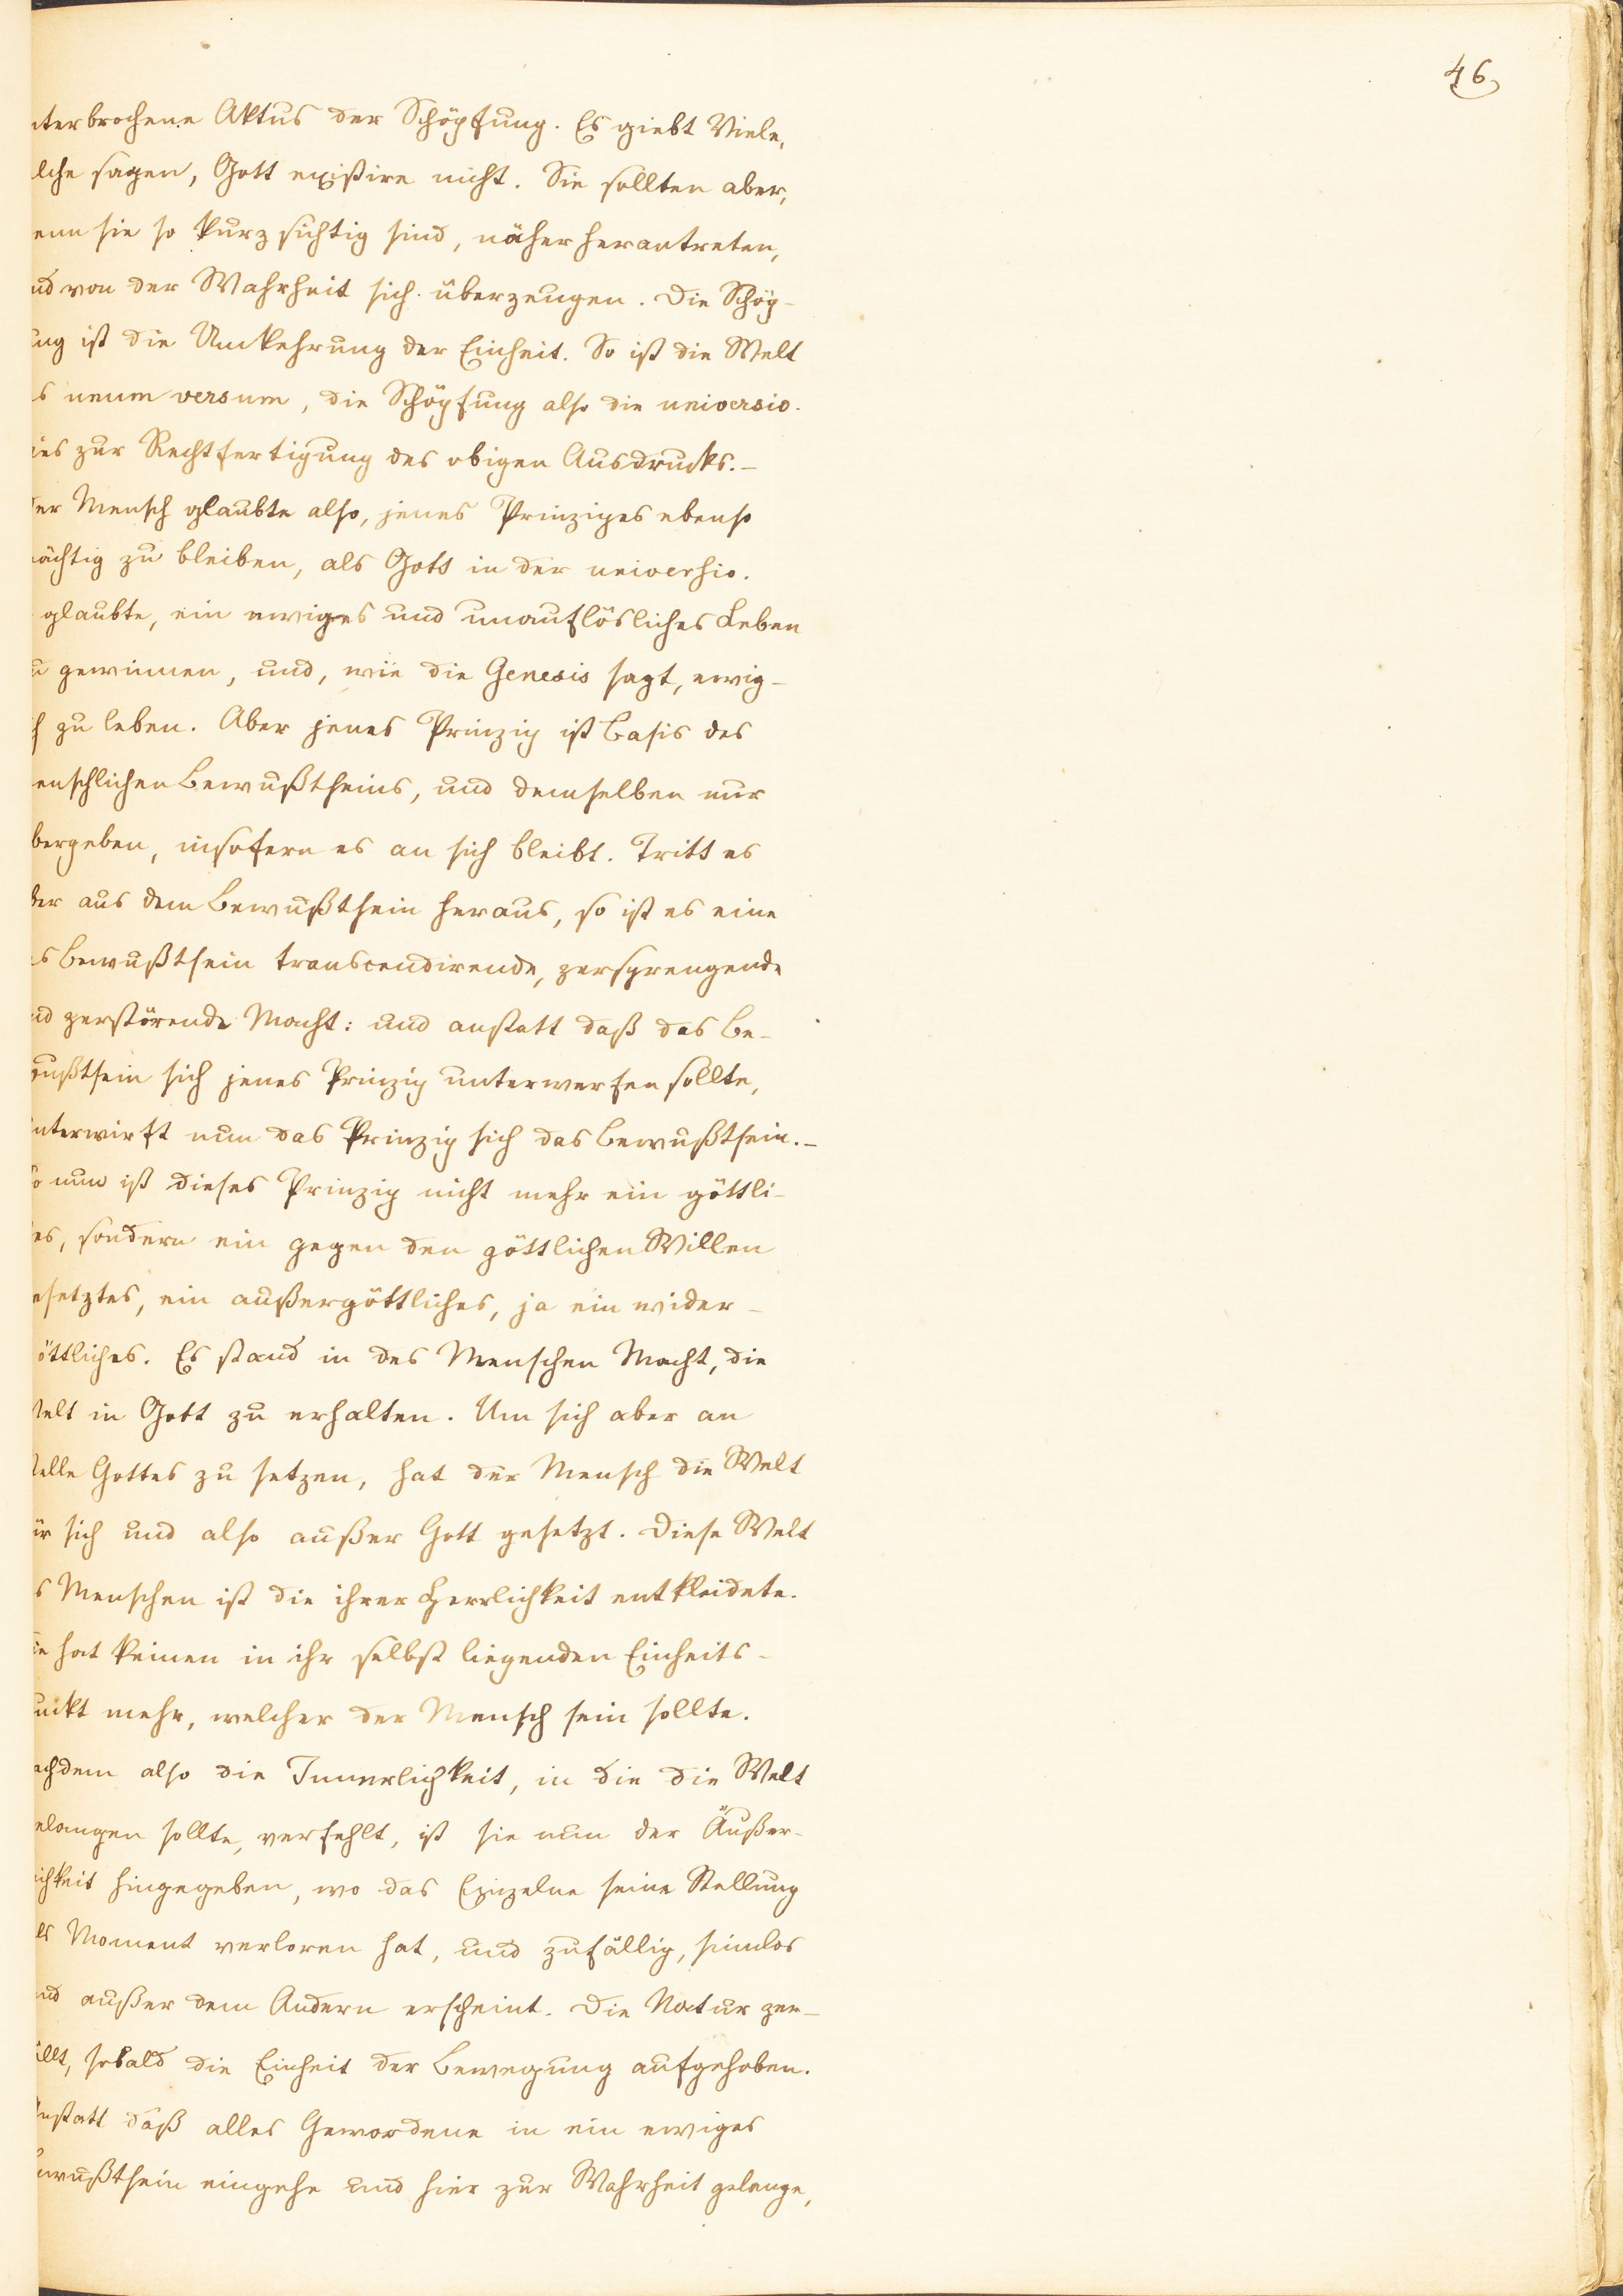 46
nterbrochene Aktus der Schöpfung. Es giebt Viele,
lche sagen, Gott existire nicht. Sie sollten aber,
enn sie so kurzsichtig sind, näher herantreten,
nd von der Wahrheit sich überzeugen. Die Schöp-
ung ist die Umkehrung der Einheit. So ist die Welt
s unum versum, die Schöpfung also die universio.
ies zur Rechtfertigung des obigen Ausdrucks.-
der Mensch glaubte also, jenes Prinzipes ebenso
mächtig zu bleiben, als Gott in der universio.
glaubte, ein ewiges und unauflösliches Leben
u gewinnen, und, wie die Genesis sagt, ewig-
h zu leben. Aber jenes Prinzip ist Basis des
enschlichen Bewußtseins, und demselben nur
bergeben, insofern es an sich bleibt. Tritt es
ber aus dem Bewußtsein heraus, so ist es eine
as Bewußtsein transcendirende, zersprengende
nd zerstörende Macht: und anstatt daß das Be-
wußtsein sich jenes Prinzip unterwerfen sollte,
unterwirft nun das Prinzip sich das Bewußtsein.-
So nun ist dieses Prinzip nicht mehr ein göttli-
hes, sondern ein gegen den göttlichen Willen
esetztes, ein außergöttliches, ja ein wider-
öttliches. Es stand in des Menschen Macht, die
Welt in Gott zu erhalten. Um sich aber an
telle Gottes zu setzen, hat der Mensch die Welt
ür sich und also außer Gott gesetzt. Diese Welt
s Menschen ist die ihrer Herrlichkeit entkleidete.
ie hat keinen in ihr selbst liegenden Einheits-
unkt mehr, welcher der Mensch sein sollte.
achdem also die Innerlichkeit, in die die Welt
elangen sollte, verfehlt, ist sie nun der Äußer-
ichkeit hingegeben, wo das Einzelne seine Stellung
ls Moment verloren hat, und zufällig, sinnlos
nd außer dem Andern erscheint. Die Natur zer-
ällt, sobald die Einheit der Bewegung aufgehoben.
Anstatt daß alles Gewordene in ein ewiges
ewußtsein eingehe und hier zur Wahrheit gelange,